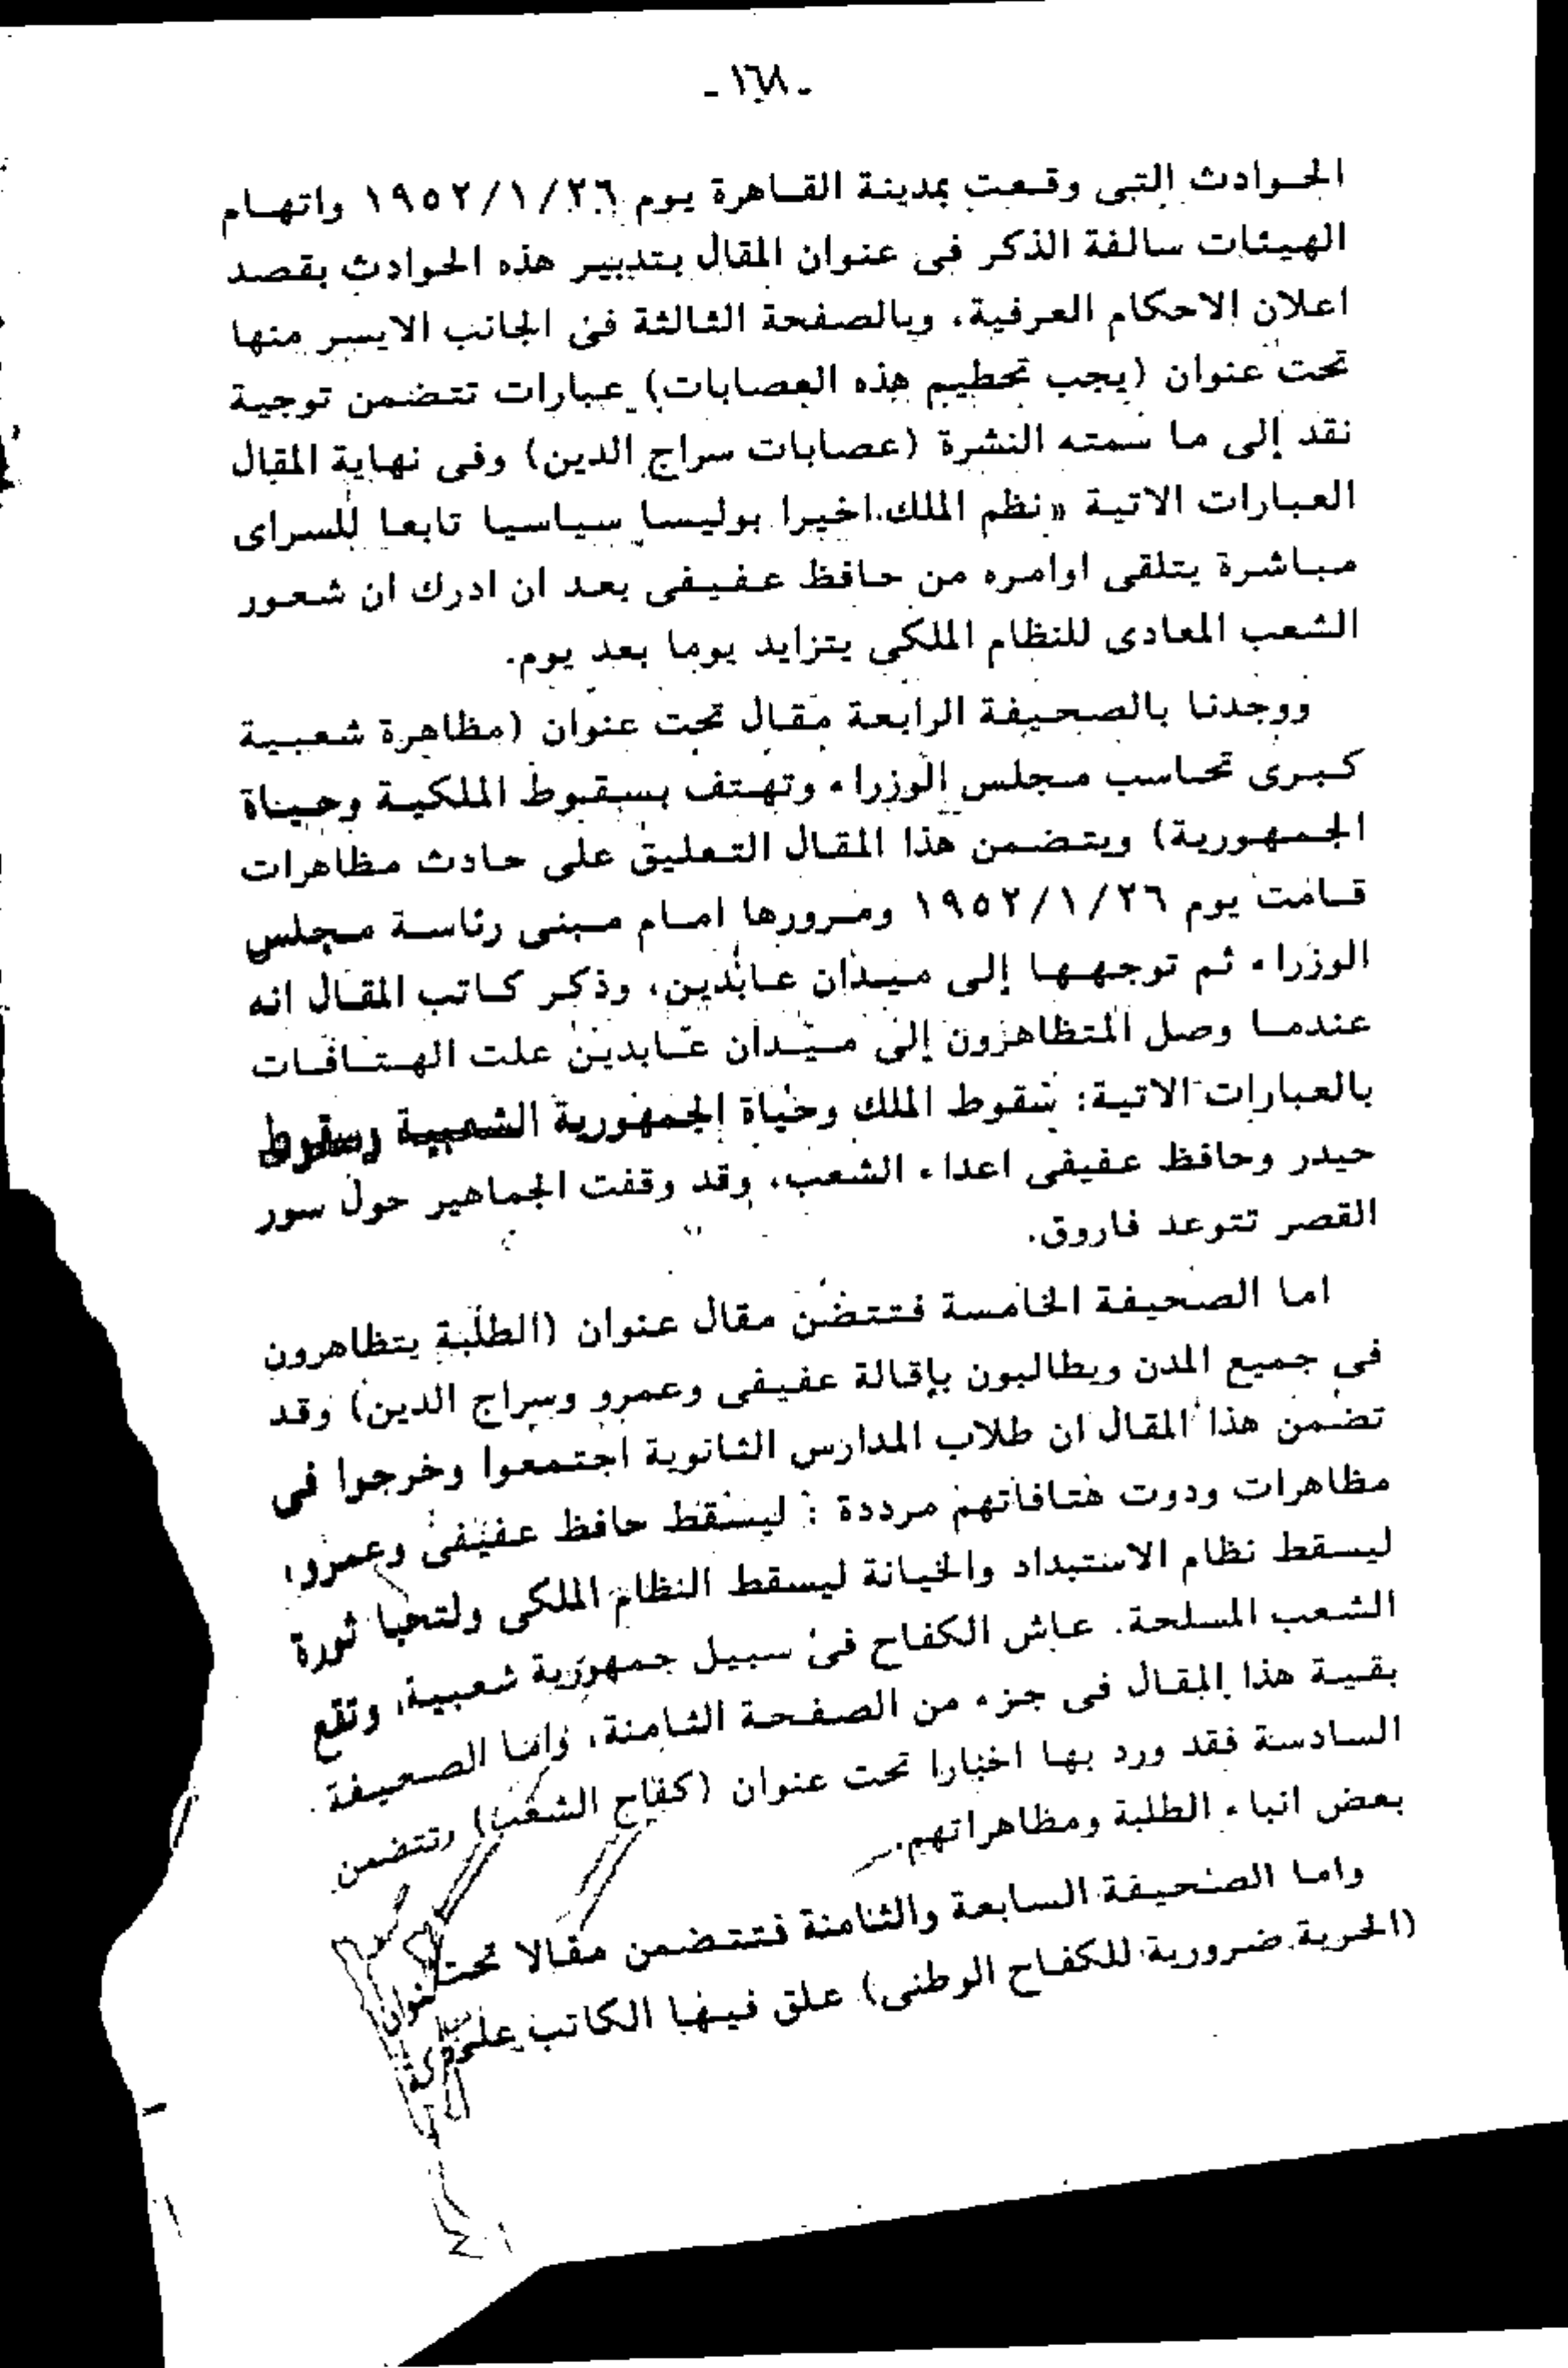 - ١٦٨ -
الحوادث التى وقعت بمدينة القاهرة يوم ١٩٥٢/١/٢٦ واتهام
الهيئات سالفة الذكر فى عنوان المقال بتدبير هذه الحوادث بقصد
اعلان الاحكام العرفية، وبالصفحة الثالثة فى الجانب الايسر منها
تحت عنوان (يجب تحطيم هذه العصابات) عبارات تتضمن توجية
نقد إلى ما سمته النشرة (عصابات سراج الدين) وفى نهاية المقال
العبارات الاتية «نظم الملك اخيرا بوليسا سياسيا تابعا للسراى
مباشرة يتلقى اوامره من حافظ عفيفى بعد ان ادرك ان شعور
الشعب المعادى للنظام الملكى يتزايد يوما بعد يوم.
ووجدنا بالصحيفة الرابعة مقال تحت عنوان (مظاهرة شعبية
كبرى تحاسب مجلس الوزراء وتهتف بسقوط الملكية وحياة
الجمهورية) ويتضمن هذا المقال التعليق على حادث مظاهرات
قامت يوم ١٩٥٢/١/٢٦ ومرورها امام مبنى رئاسة مجلس
الوزراء ثم توجهها إلى ميدان عابدين، وذكر كاتب المقال انه
عندما وصل المتظاهرون إلى ميدان عابدين علت الهتافات
بالعبارات الاتية: سقوط الملك وحياة الجمهورية الشعبية وسقوط
حيدر وحافظ عفيفى اعداء الشعب، وقد وقفت الجماهير حول سور
القصر تتوعد فاروق.
اما الصحيفة الخامسة فتتضن مقال عنوان (الطلبة يتظاهرون
فى جميع المدن ويطالبون بإقالة عفيفى وعمرو وسراج الدين) وقد
تضمن هذا المقال ان طلاب المدارس الثانوية اجتمعوا وخرجوا فى
مظاهرات ودوت هتافاتهم مرددة : ليسقط حافظ عفيفى وعمرو،
ليسقط نظام الاستبداد والخيانة ليسقط النظام الملكى ولتحيا ثورة
الشعب المسلحة. عاش الكفاح فى سبيل جمهورية شعبية، وتقع
بقية هذا المقال فى جزء من الصفحة الثامنة، واما الصحيفة
السادسة فقد ورد بها اخبارا تحت عنوان (كفاح الشعب) وتتضمن
بعض انباء الطلبة ومظاهراتهم.
واما الصحيفة السابعة والثامنة فتتضمن مقالا تحت عنوان
(الحرية ضرورية للكفاح الوطنى) علق فيها الكاتب على